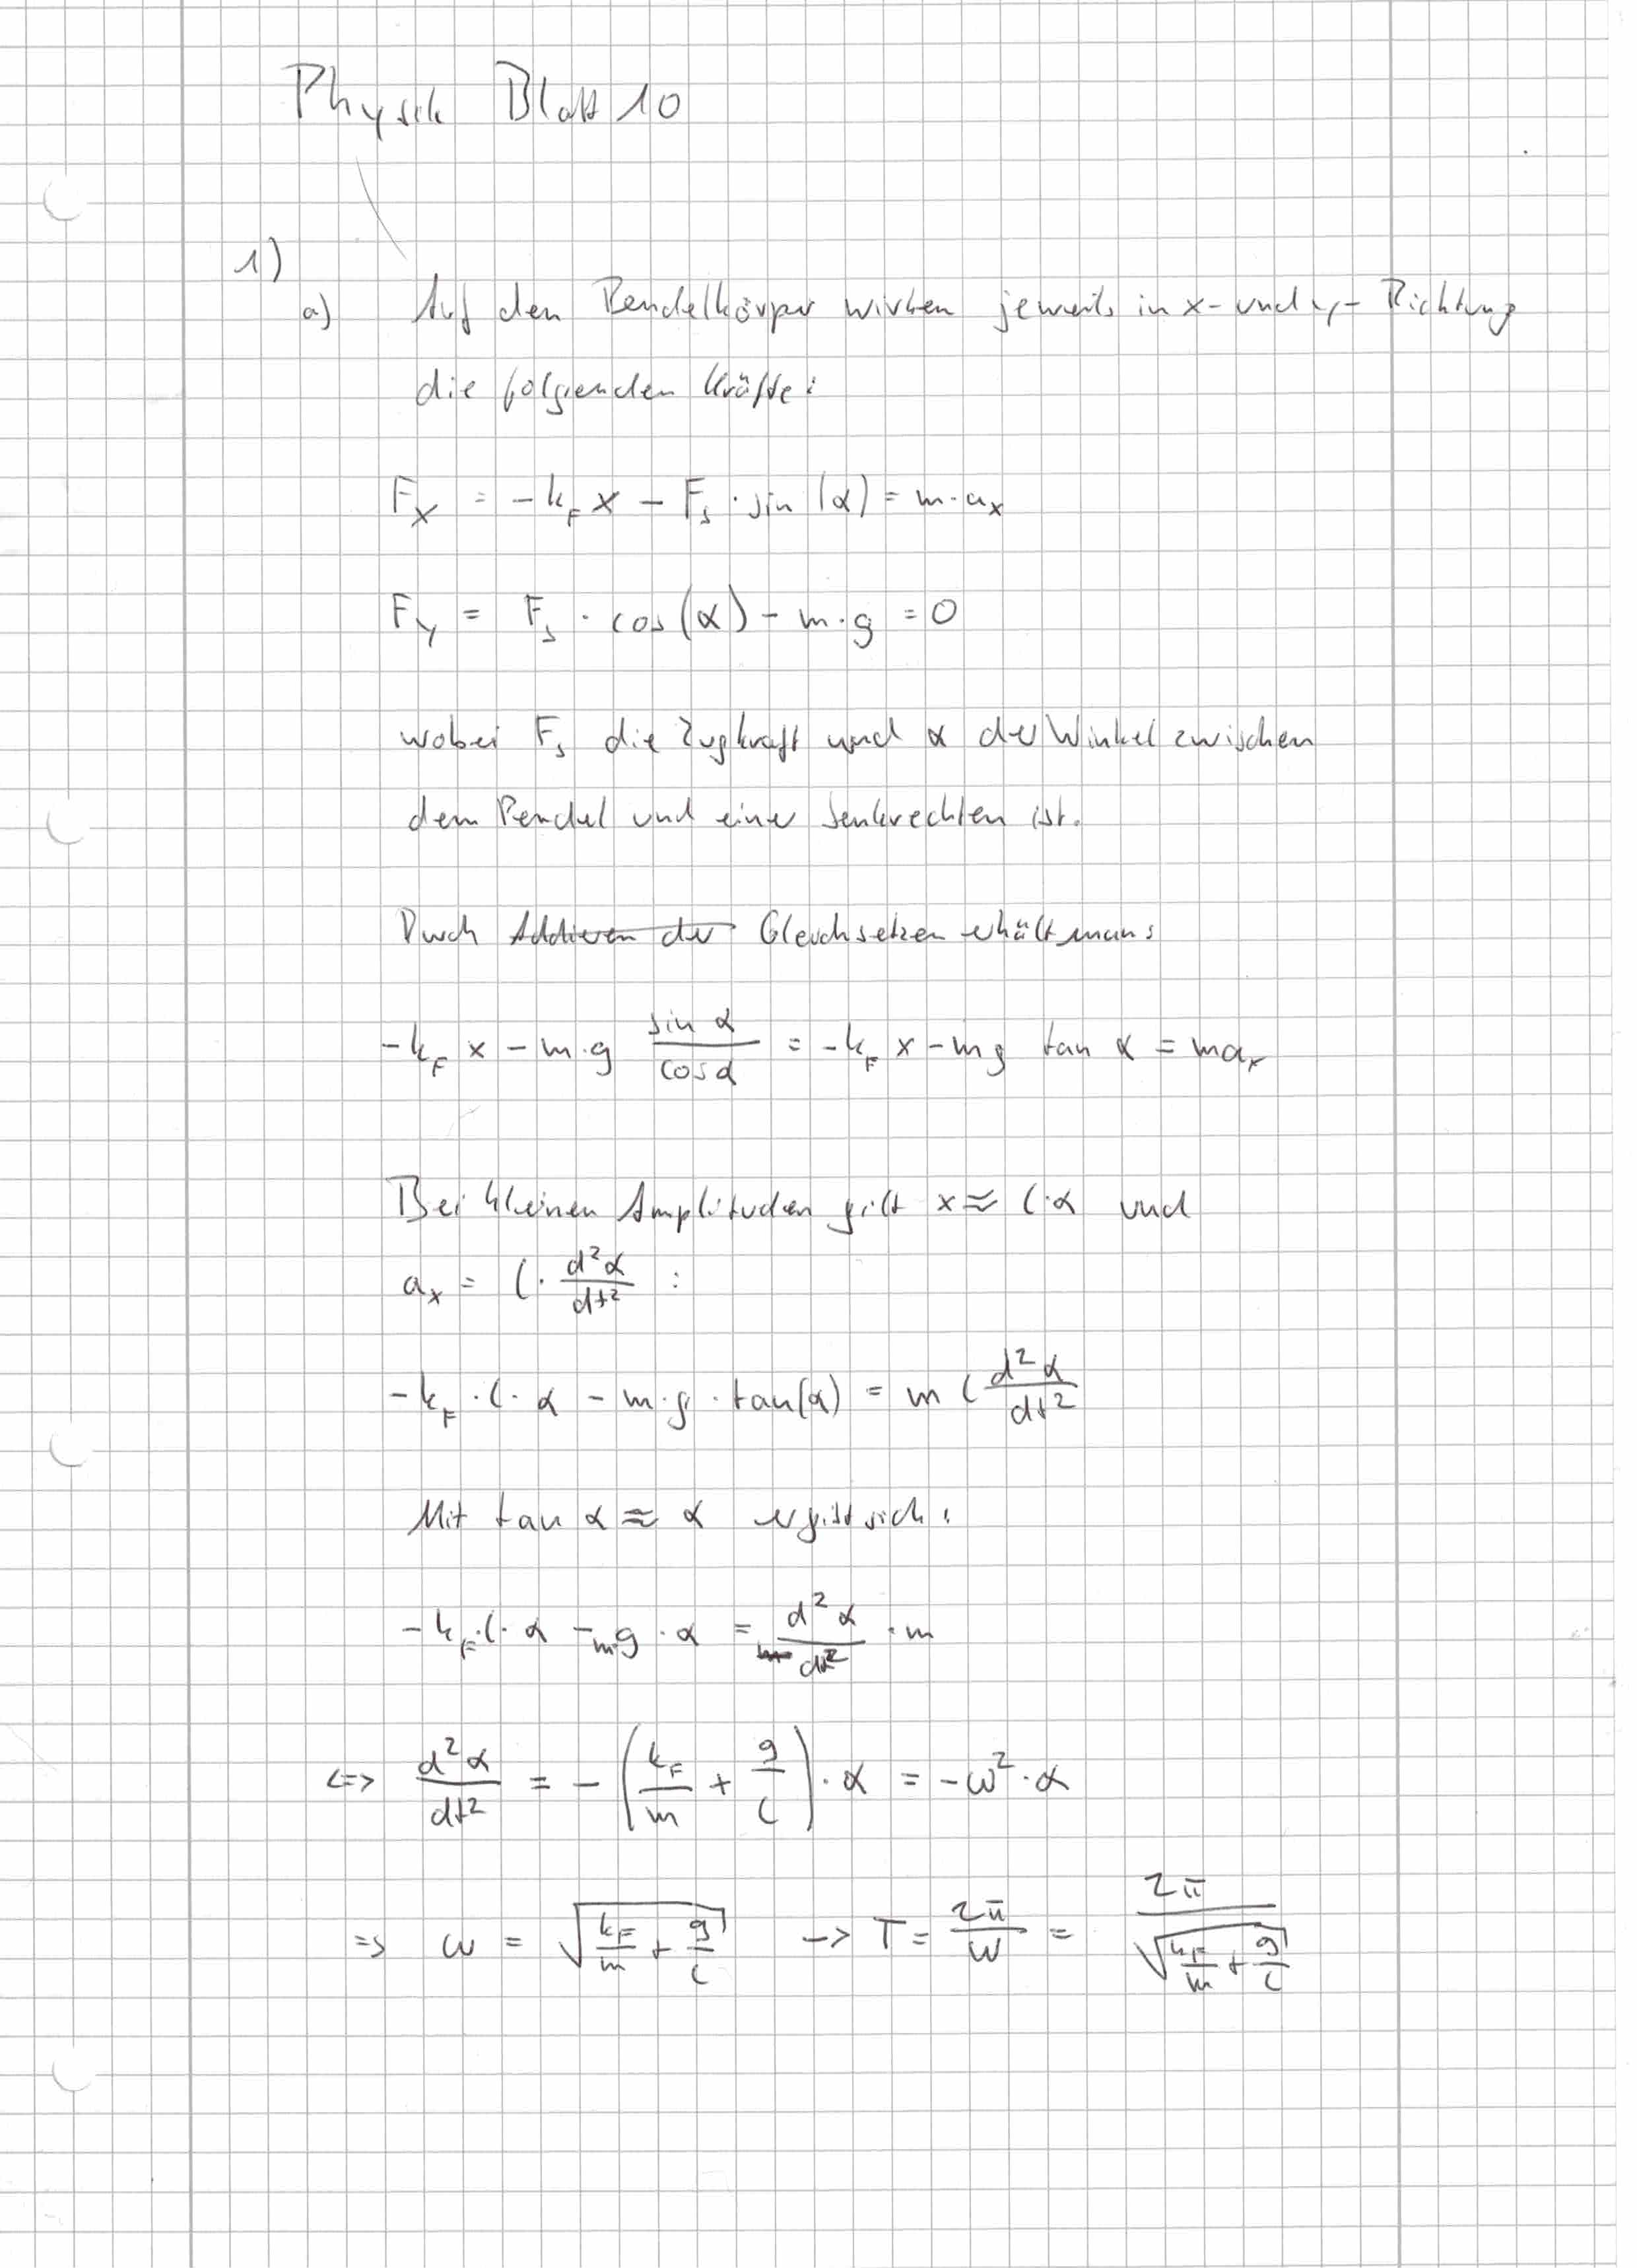 Physik Blatt 10
1)
a) Auf den Pendelkörper wirken jeweils in x- und y- Richtung
die folgenden Kräfte:
F_x = -k_F x - F_s · sin(α) = m·a_x
F_y = F_s · cos(α) - m·g = 0
wobei F_s die Zugkraft und α der Winkel zwischen
dem Pendel und einer Senkrechten ist.
Durch ~~Addieren der~~ Gleichsetzen erhält man:
-k_F x - m·g \frac{sin α}{cos α} = -k_F x - mg tan α = ma_x
Bei kleinen Amplituden gilt x ≈ l·α und
a_x = l · \frac{d²α}{dt²} :
-k_F · l · α - m·g · tan(α) = m l \frac{d²α}{dt²}
Mit tan α ≈ α ergibt sich:
-k_F · l · α - m·g · α = \frac{d²α}{dt²} · m
<=> \frac{d²α}{dt²} = - (\frac{k_F}{m} + \frac{g}{l}) · α = -ω² · α
=> ω = \sqrt{\frac{k_F}{m} + \frac{g}{l}} -> T = \frac{2π}{ω} = \frac{2π}{\sqrt{\frac{k_F}{m} + \frac{g}{l}}}